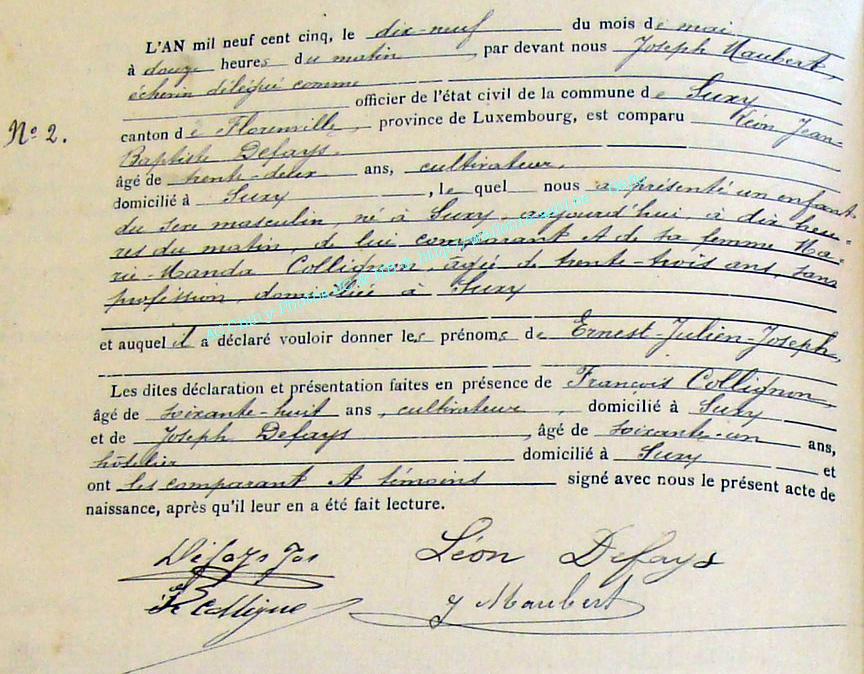 L'AN mil neuf cent cinq, le dix-neuf du mois de mai
à douze heures du matin, par devant nous Joseph Maubert,
échevin délégué comme
officier de l'état civil de la commune de Suxy
Nº 2.
canton de Florenville, province de Luxembourg, est comparu Léon Jean-
Baptiste Defays,
âgé de trente-deux ans, cultivateur,
domicilié à Suxy, lequel nous a présenté un enfant
du sexe masculin, né à Suxy, aujourd'hui, à dix heu-
res du matin, de lui comparant et de sa femme Ma-
rie-Manda Collignon, âgée de trente-trois ans, sans
profession, domiciliée à Suxy
et auquel il a déclaré vouloir donner les prénoms de Ernest-Julien-Joseph,
Les dites déclaration et présentation faites en présence de François Collignon,
âgé de soixante-huit ans, cultivateur, domicilié à Suxy
et de Joseph Defays, âgé de soixante-un ans,
hôtelier domicilié à Suxy et
ont les comparant et témoins signé avec nous le présent acte de
naissance, après qu'il leur en a été fait lecture.
Défays Jos Léon Defays
J Maubert